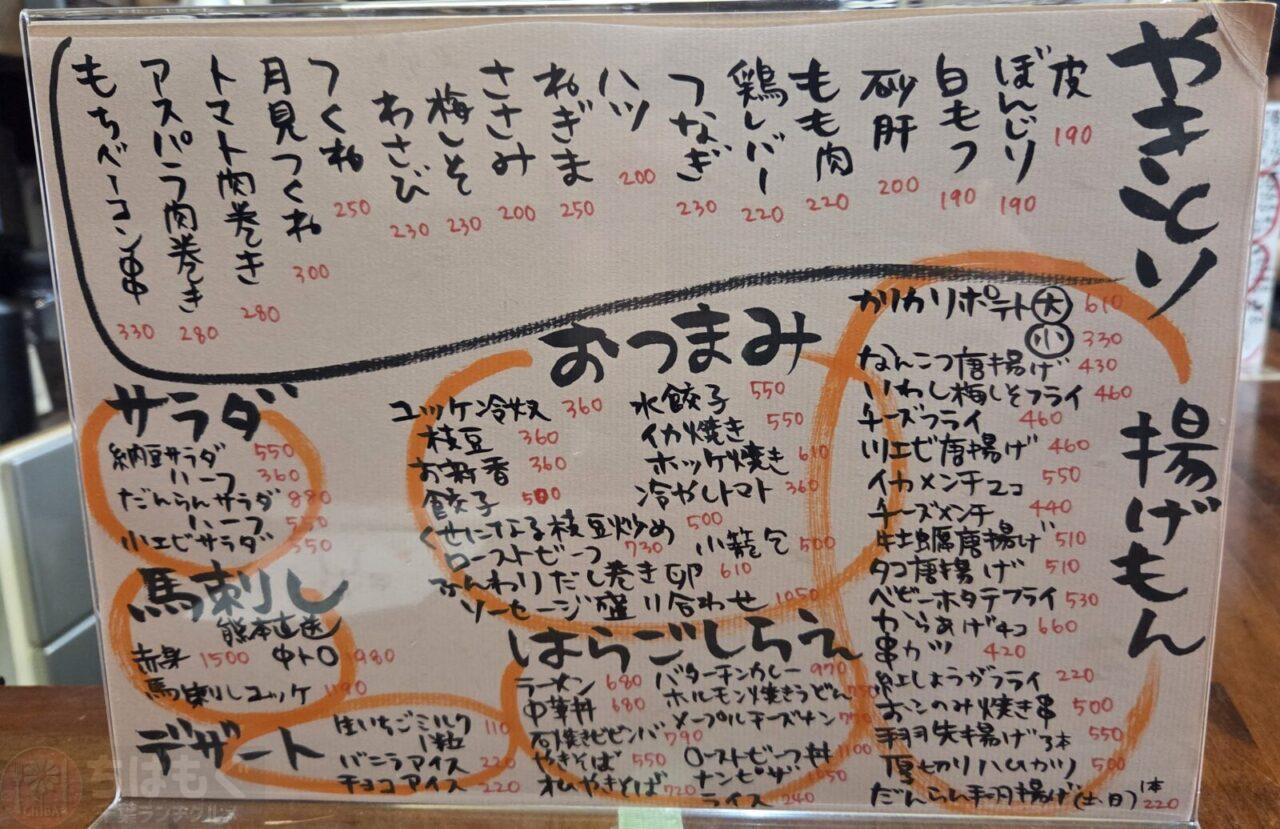 やきとり
皮 190
ぼんじり 190
白もつ 190
砂肝 200
もも肉 220
鶏レバー 220
つなぎ 230
ハツ 200
ねぎま 250
ささみ 200
梅しそ 230
わさび 230
つくね 250
月見つくね 300
トマト肉巻き 280
アスパラ肉巻き 280
もちベーコン串 330
揚げもん
カリカリポテト 大 610
小 330
なんこつ唐揚げ 430
いわし梅しそフライ 460
チーズフライ 460
川エビ唐揚げ 460
イカメンチ2コ 550
チーズメンチ 440
牡蠣唐揚げ 510
タコ唐揚げ 510
ベビーホタテフライ 530
からあげ4コ 660
串カツ 420
紅しょうがフライ 220
おこのみ焼き串 500
手羽先揚げ3本 550
厚切りハムカツ 500
だんらん手羽揚げ(土、日) 1本 220
おつまみ
ユッケ冷奴 360
枝豆 360
お新香 360
餃子 500
水餃子 550
イカ焼き 550
ホッケ焼き 610
冷やしトマト 360
くせになる枝豆炒め 500
ローストビーフ 730
小籠包 500
ふんわりだし巻き卵 610
ソーセージ盛り合わせ 1050
サラダ
納豆サラダ 550
ハーフ 360
だんらんサラダ 880
ハーフ 550
小エビサラダ 550
馬刺し
熊本直送
赤身 1500
中トロ 1980
馬刺しユッケ 1190
はらごしらえ
ラーメン 680
中華丼 680
石焼ビビンバ 790
やきそば 550
オムやきそば 720
バターチキンカレー 970
ホルモン焼きうどん 750
メープルチーズナン 770
ローストビーフ丼 1100
ナンピザ 1050
ライス 240
デザート
生いちごミルク
1粒 110
バニラアイス 220
チョコアイス 220
ちばもぐ
CHIBA
千葉ランチグルメ